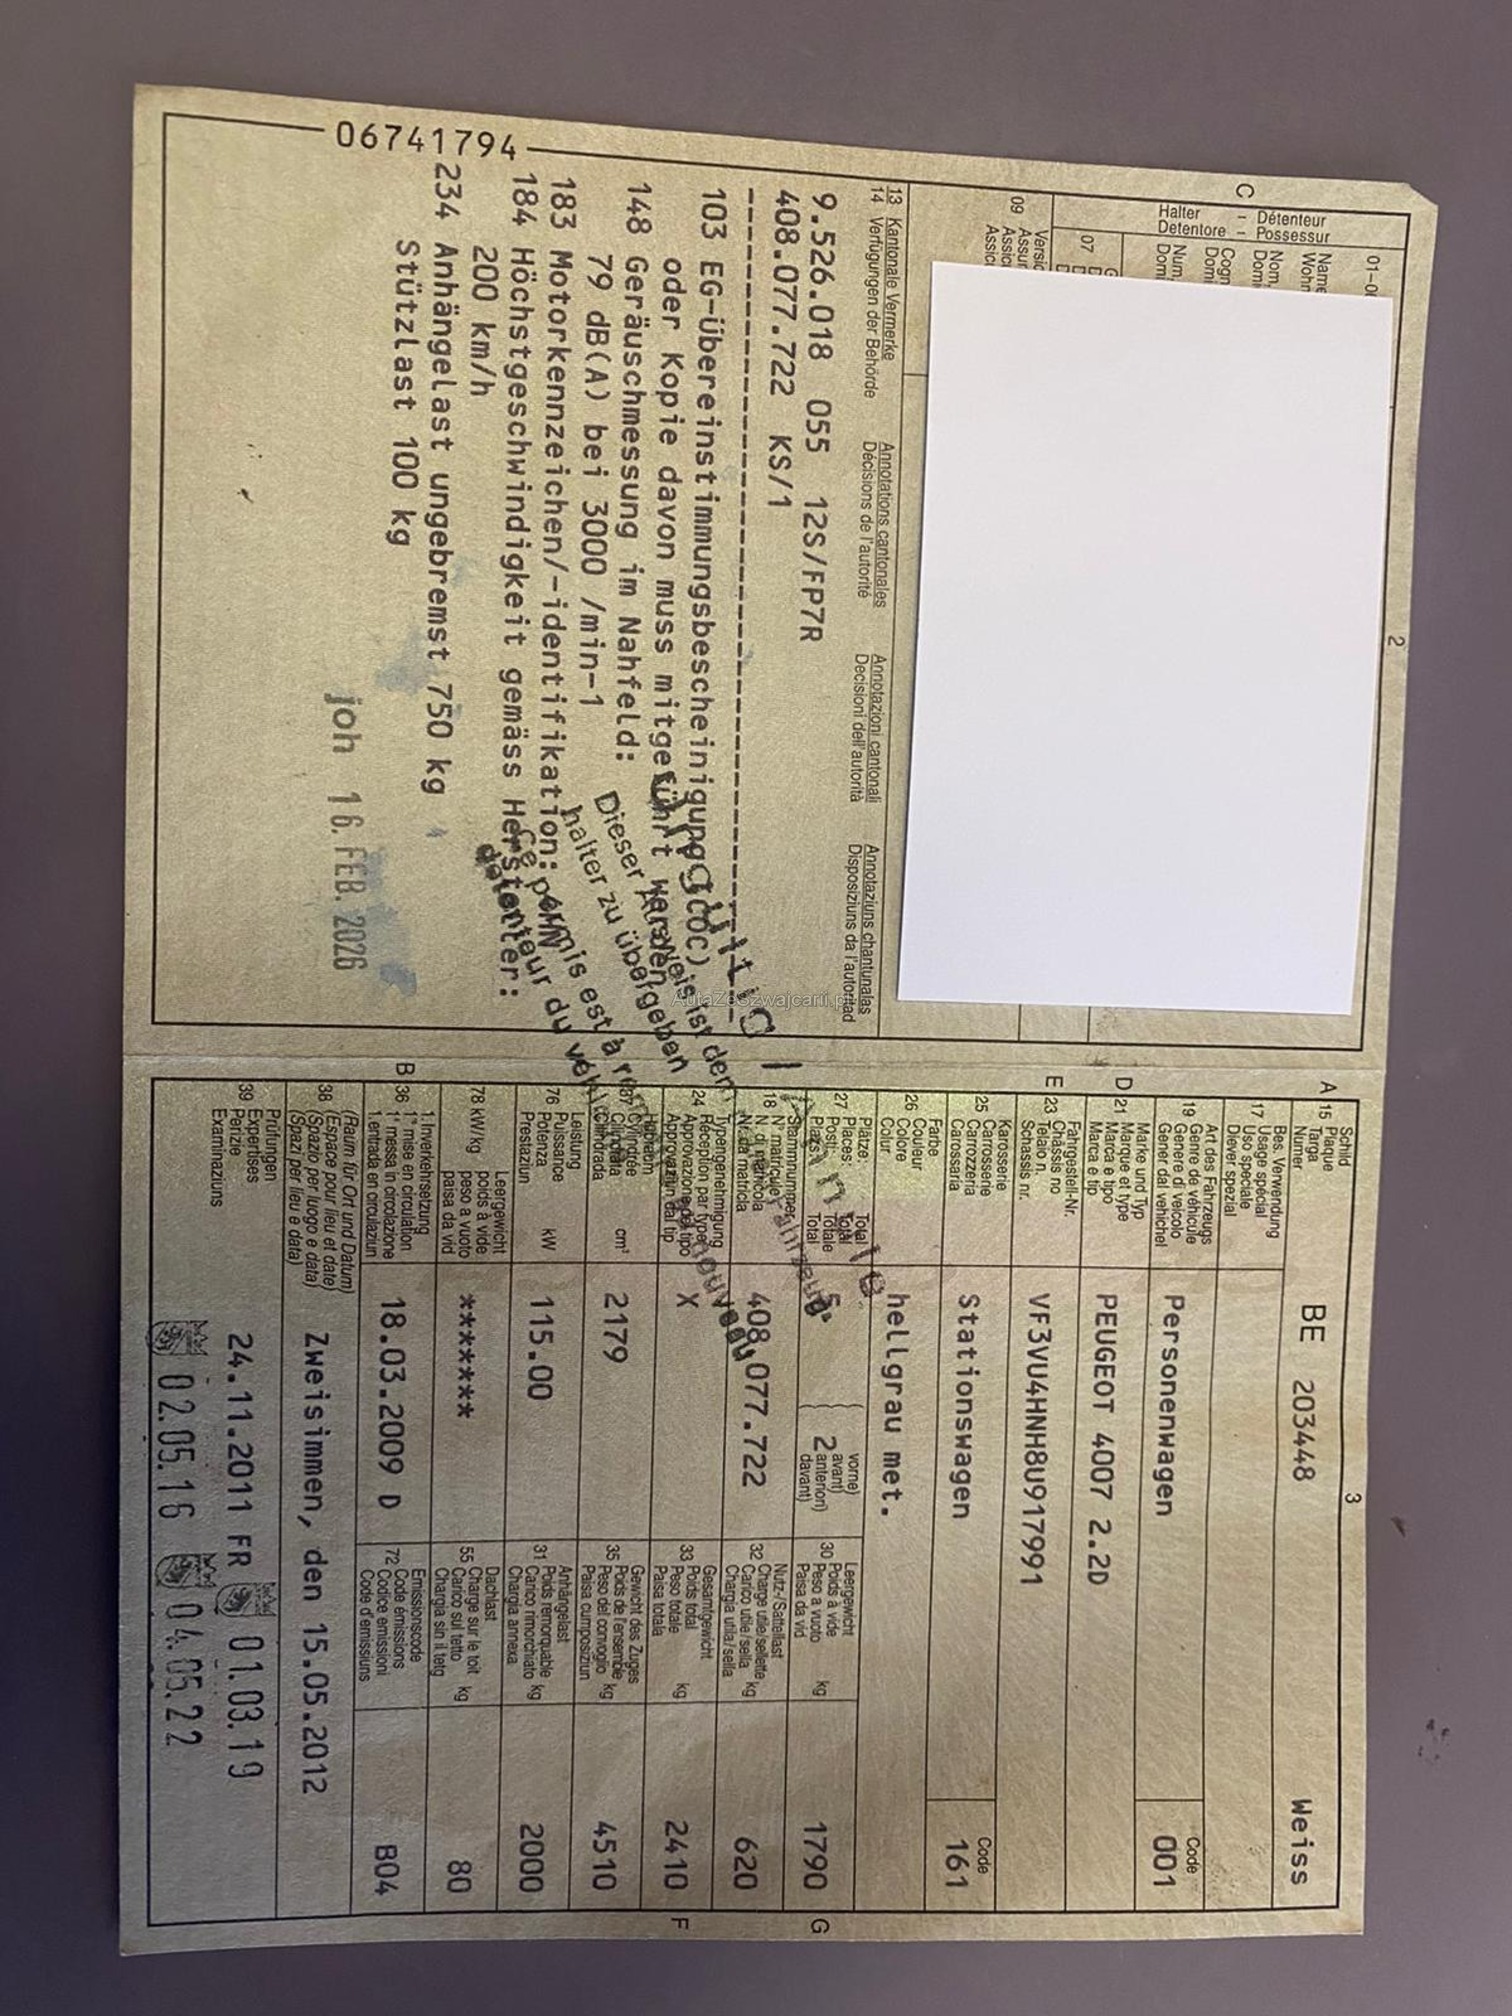 2
01-0
C
Halter - Détenteur
Detentore - Possessur
Name
Wohn
Nom,
Domi
Cogn
Domi
Num,
Dom
07
09
Versic
Assur
Assic
Assic
13 Kantonale Vermerke Annotations cantonales Annotazioni cantonali Annotaziuns chantunalas
14 Verfügungen der Behörde Décisions de l'autorité Decisioni dell'autorità Disposiziuns da l'autoritad
9.526.018 055 12S/FP7R
408.077.722 KS/1
103 EG-Übereinstimmungsbescheinigung (COC)
oder Kopie davon muss mitgeführt werden
148 Geräuschmessung im Nahfeld:
79 dB(A) bei 3000 /min-1
183 Motorkennzeichen/-identifikation: 4HN
184 Höchstgeschwindigkeit gemäss Hersteller:
200 km/h
234 Anhängelast ungebremst 750 kg
Stützlast 100 kg
06741794
joh 16. FEB. 2026
Dieser Ausweis ist dem
halter zu übergeben
Ce permis est à
détenteur du véhicule
nouveau
AutaZeSzwajcarii.pl
3
A 15 Schild
Plaque
Targa
Numer
BE 203448 Weiss
17 Bes. Verwendung
Usage spécial
Uso speciale
Diever spezial
19 Art des Fahrzeugs
Genre de véhicule
Genere di veicolo
Gener dal vehichel
Personenwagen
Code
001
D 21 Marke und Typ
Marque et type
Marca e tipo
Marca e tip
PEUGEOT 4007 2.2D
E 23 Fahrgestell-Nr.
Châssis no
Telaio n.
Schassis nr.
VF3VU4HNH8U917991
25 Karosserie
Carrosserie
Carrozzeria
Carossaria
Stationswagen
Code
161
26 Farbe
Couleur
Colore
Colur
hellgrau met.
27 Plätze: Total
Places: Total
Posti: Totale
Plazs: Total
5
2
vorne)
avant)
anteriori)
davant)
30 Leergewicht
Poids à vide
Peso a vuoto
Paisa da vid
kg
1790
G
18 Stammnummer
N° matricule
N. di matricola
Nr. da matricla
408.077.722
32 Nutz-/Sattellast
Charge utile/sellette
Carico utile/sella
Chargia utila/sella
kg
620
24 Typengenehmigung
Réception par type
Approvazione del tipo
Approvaziun dal tip
X
33 Gesamtgewicht
Poids total
Peso totale
Paisa totala
kg
2410
F
37 Hubraum
Cylindrée
Cilindrata
Cilindrada
cm³
2179
35 Gewicht des Zuges
Poids de l'ensemble
Peso del convoglio
Paisa cumposiziun
kg
4510
76 Leistung
Puissance
Potenza
Prestaziun
kW
115.00
31 Anhängelast
Poids remorquable
Carico rimorchiato
Chargia annexa
kg
2000
78 kW/kg
Leergewicht
poids à vide
peso a vuoto
paisa da vid
*******
55 Dachlast
Charge sur le toit
Carico sul tetto
Chargia sin il tetg
kg
80
B 36 1. Inverkehrsetzung
1re mise en circulation
1a messa in circolazione
1. entrada en circulaziun
18.03.2009 D
72 Emissionscode
Code émissions
Codice emissioni
Code d'emissiuns
B04
38 (Raum für Ort und Datum)
(Espace pour lieu et date)
(Spazio per luogo e data)
(Spazi per lieu e data)
Zweisimmen, den 15.05.2012
39 Prüfungen
Expertises
Perizie
Examinaziuns
24.11.2011 FR 01.03.19
02.05.16 04.05.22